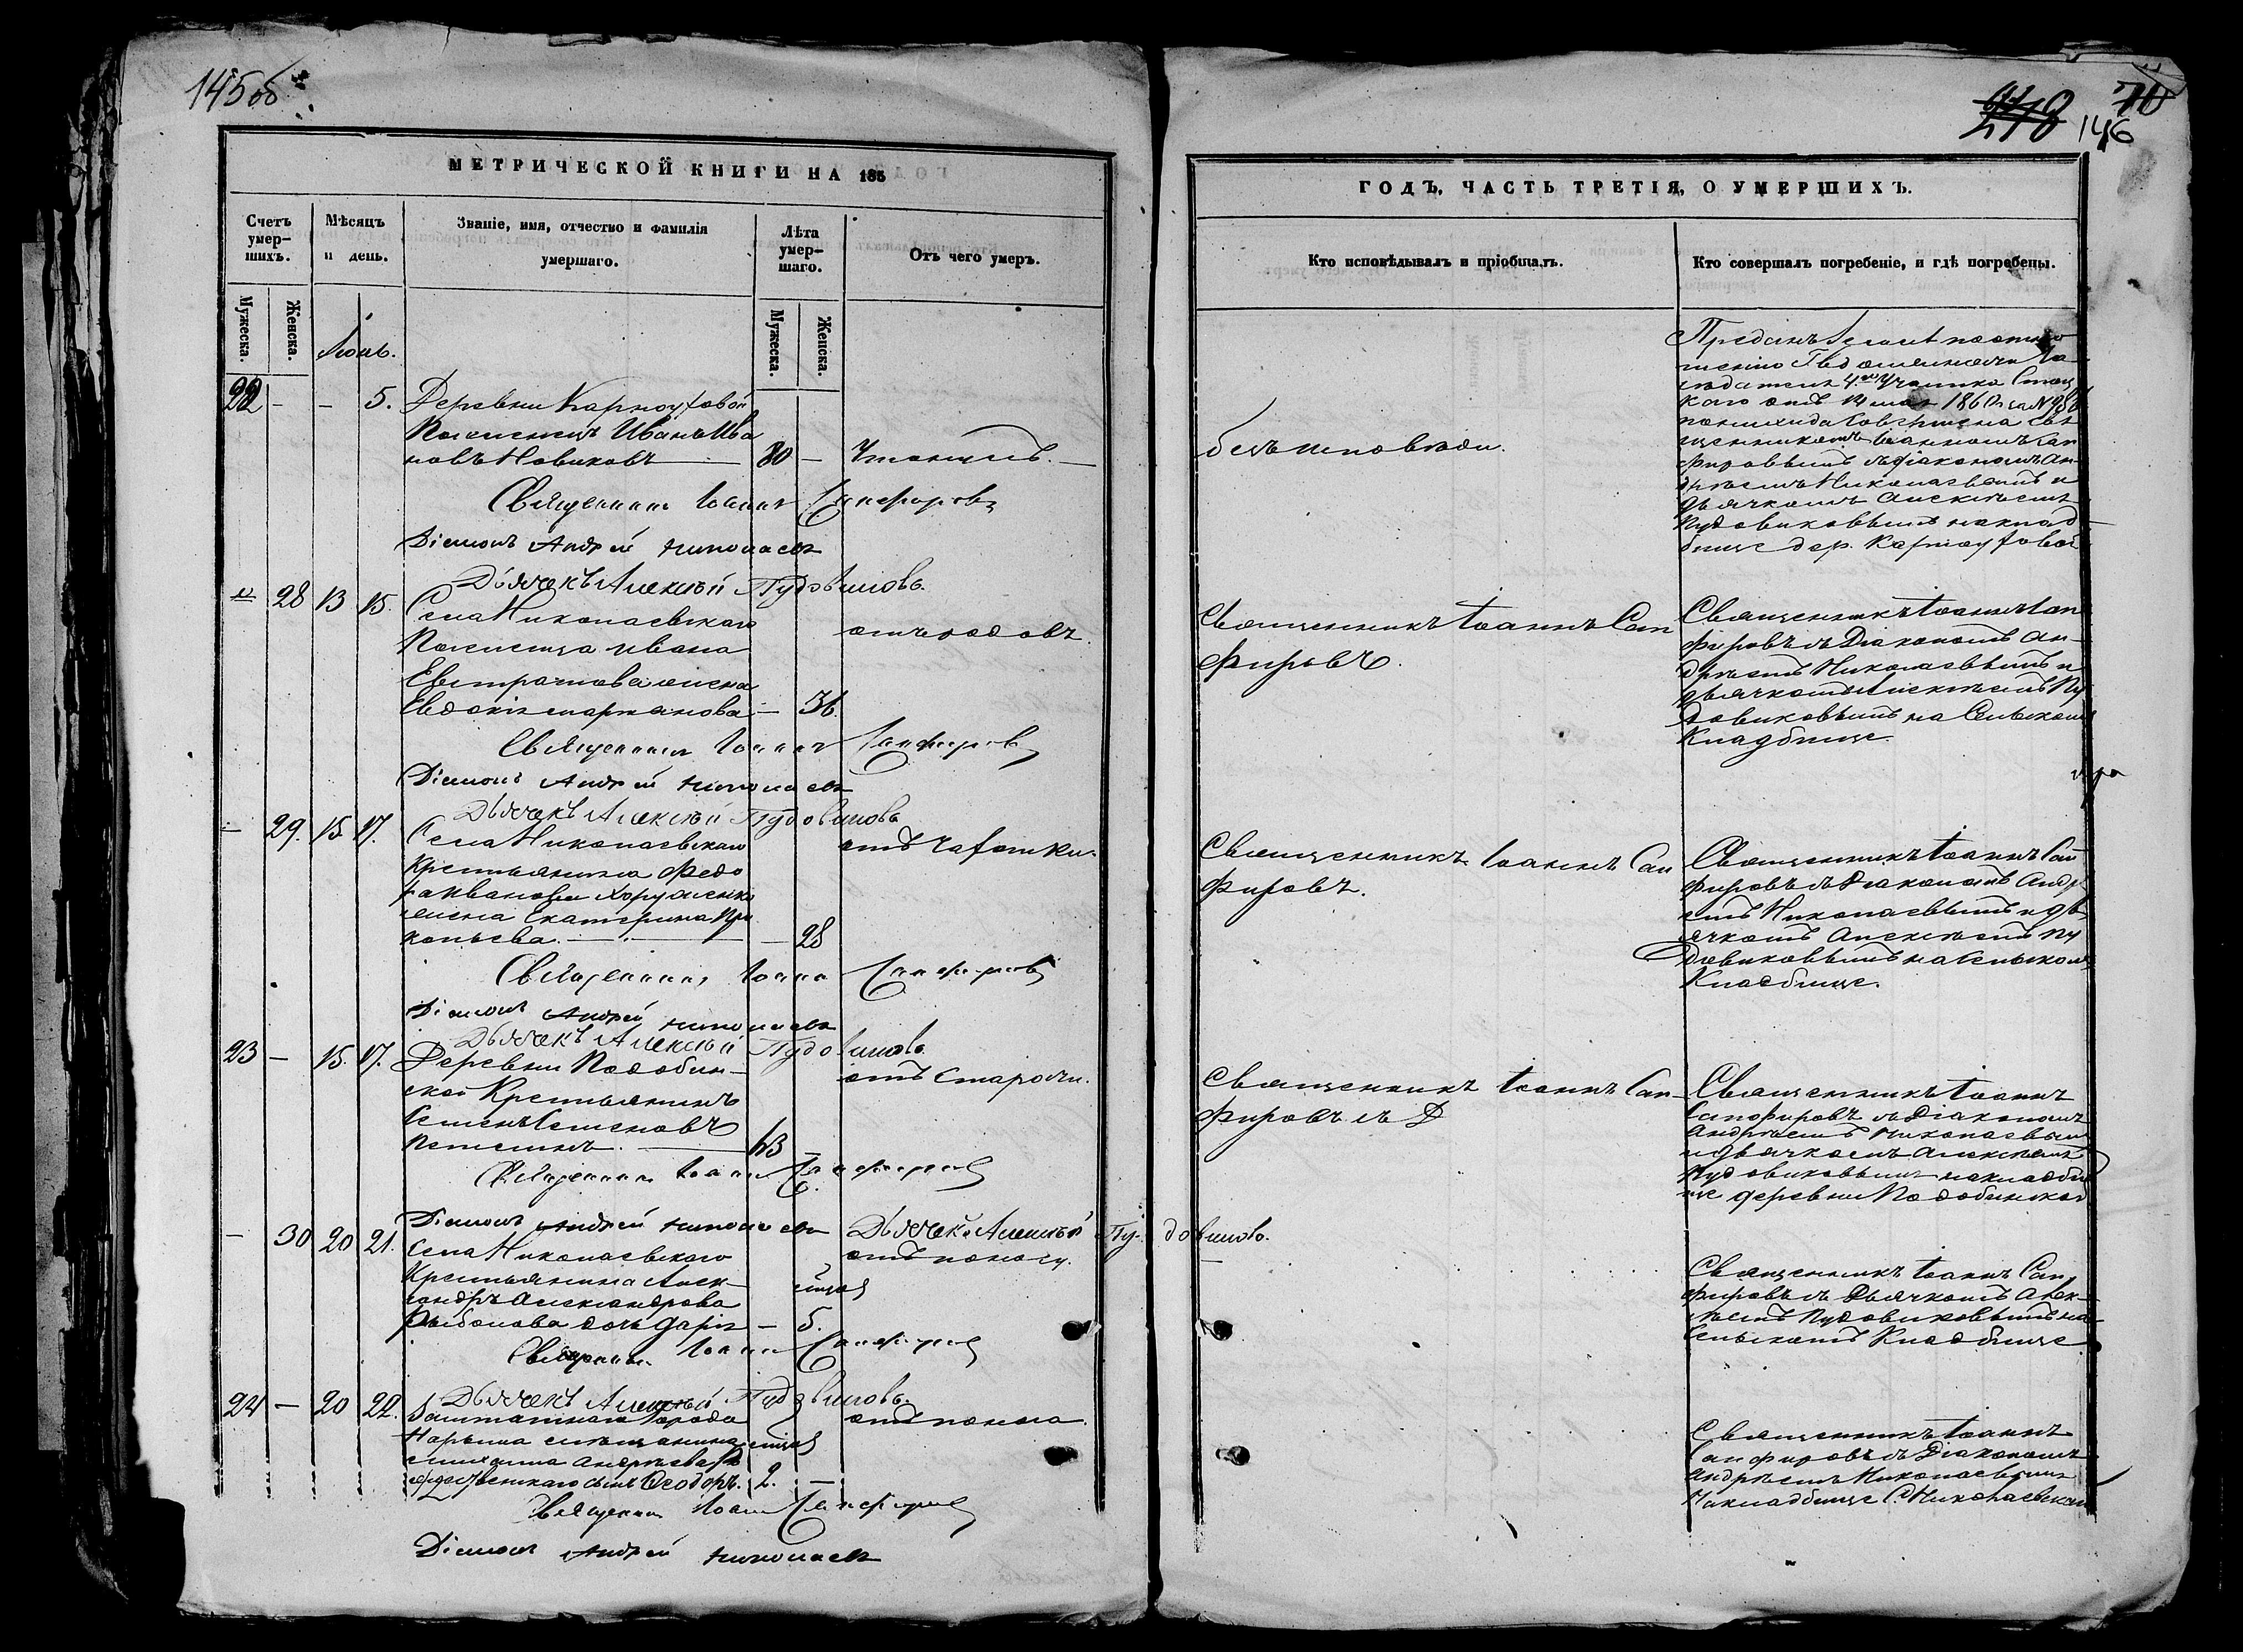 145 об
МЕТРИЧЕСКОЙ КНИГИ НА 185
Счетъ умер-
шихъ.
Мѣсяцъ
и день.
Званіе, имя, отчество и фамилія
умершаго.
Лѣта
умер-
шаго.
Отъ чего умеръ.
Мужеска.
Женска.
Мужеска.
Женска.
Іюнь.
22 - - 5. Деревни
Поселенецъ Иванъ Ива
новъ Новиковъ 30 -
Священникъ Іоаннъ Сапфировъ
Діаконъ Андрей Николаевъ
Дьячекъ Алексѣй Пудовиковъ.
28 13 15. Села Николаевскаго
Поселенца Ивана
жена
Евдокія - 36.
отъ родовъ.
Священникъ Іоаннъ Сапфировъ
Діаконъ Андрей Николаевъ
Дьячекъ Алексѣй Пудовиковъ
- 29. 15 17. Села Николаевскаго
Крестьянина Федо
ра Иванова
жена Екатерина Про
копьева. - 28
отъ чахотки.
Священникъ Іоаннъ Сапфировъ
Діаконъ Андрей Николаевъ
Дьячекъ Алексѣй Пудовиковъ.
23 - 15. 17. Деревни Подобин-
ской Крестьянинъ
Семенъ Семеновъ
63 -
отъ старости.
Священникъ Іоаннъ Сапфировъ
Діаконъ Андрей Николаевъ Дьячекъ Алексѣй Пудовиковъ.
- 30 20 21. Села Николаевскаго
Крестьянина Алек-
сандръ Александрова
дочь Дарія - 5.
отъ поносу.
Священникъ Іоаннъ Сапфировъ
Дьячекъ Алексѣй Пудовиковъ.
24 - 20 22. Заштатнаго Города
Нарыма мѣщанина
Михаила Андреева
сынъ Ѳеодоръ. 2. -
отъ поноса.
Священникъ Іоаннъ Сапфировъ
Діаконъ Андрей Николаевъ
218
146
ГОДЪ, ЧАСТЬ ТРЕТІЯ, О УМЕРШИХЪ.
Кто исповѣдывалъ и пріобщалъ.
Кто совершалъ погребеніе, и гдѣ погребены.
безъ исповѣди.
Преданъ землѣ по отно-
шенію
4го Участка
панихида совершена свя
щенникомъ Іоанномъ Сап
фировымъ съ діакономъ Ан-
дреемъ Николаевымъ и
дьячкомъ Алексѣемъ
Пудовиковымъ на клад-
бище дер.
Священникъ Іоаннъ Сап
фировъ.
Священникъ Іоаннъ Сап
фировъ съ Діакономъ Ан-
дреемъ Николаевымъ и
дьячкомъ Алексѣемъ Пу
довиковымъ на Сельскомъ
Кладбище.
Священникъ Іоаннъ Сап
фировъ.
Священникъ Іоаннъ Сап
фировъ съ Діакономъ Андре
емъ Николаевымъ и дь-
ячкомъ Алексѣемъ Пу
довиковымъ на Сельскомъ
Кладбище.
Священникъ Іоаннъ Сап-
фировъ съ Д
Священникъ Іоаннъ
Сапфировъ съ Діакономъ
Андреемъ Николаевымъ
и дьячкомъ Алексѣемъ
Пудовиковымъ на кладби
ще деревни Подобинской
-
Священникъ Іоаннъ Сап
фировъ съ Дьячкомъ Алек-
сѣемъ Пудовиковымъ на
Сельскомъ Кладбище
Священникъ Іоаннъ
Сапфировъ съ Діакономъ
Андреемъ Николаевымъ
На кладбище С. Николаевскомъ